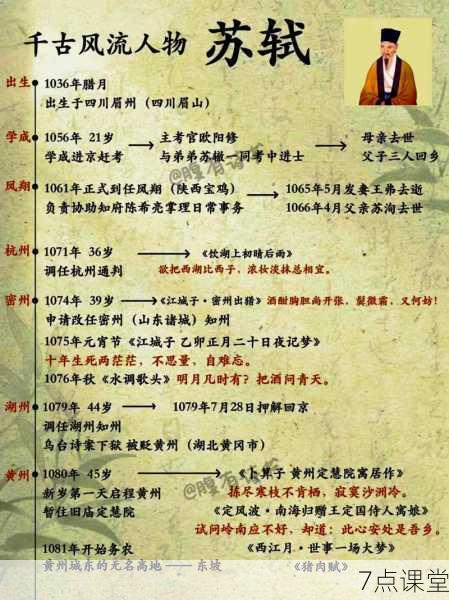 千古风流人物 苏轼
出生 1036年腊月
出生于四川眉州（四川眉山）
学成 1056年 21岁 → 主考官欧阳修 → 母亲去世
学成进京赶考 与弟弟苏辙一同考中进士 父子三人回乡
凤翔 1061年正式到任凤翔（陕西宝鸡） → 1065年5月发妻王弗去逝
负责协助知府陈希亮掌理日常事务 1066年4月父亲苏洵去世
杭州 1071年 36岁 → 《饮湖上初晴后雨》
调任杭州通判 欲把西湖比西子，浓妆淡抹总相宜。
密州 1074年 39岁 → 《江城子·密州出猎》酒酣胸胆尚开张，鬓微霜，又何妨！
申请改任密州（山东诸城）知州
1075年元宵节《江城子 乙卯正月二十日夜记梦》
十年生死两茫茫，不思量，自难忘。
1076年秋《水调歌头》明月几时有？把酒问青天。
湖州 1079年 44岁 → 1079年7月28日押解回京
调任湖州知州
乌台诗案下狱 被贬黄州（湖北黄冈市）
黄州 1080年 45岁 → 《卜算子 黄州定慧院寓居作》
新岁第一天启程黄州 拣尽寒枝不肯栖，寂寞沙洲冷。
暂住旧庙定慧院 《定风波·南海归赠王定国侍人寓娘》
试问岭南应不好，却道：此心安处是吾乡。
1081年开始务农 《西江月·世事一场大梦》
黄州城东的无名高地 —— 东坡 《猪肉赋》
@腹有诗书
@腹有诗书
7点课堂